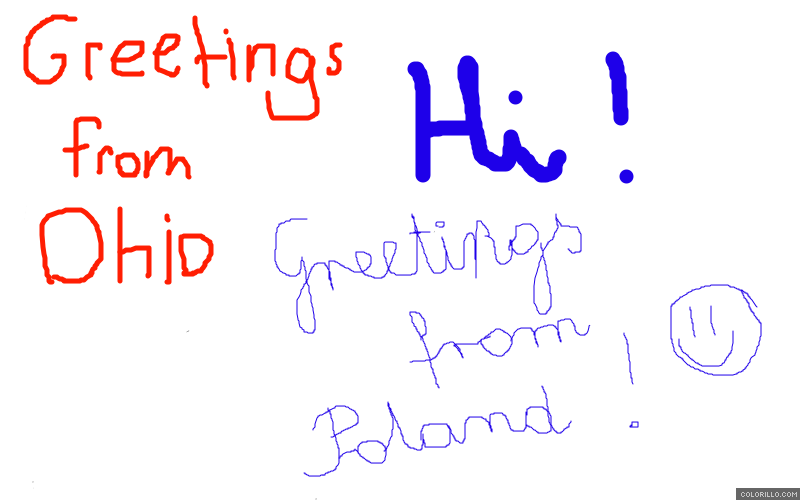 Greetings
from
Ohio
Hi!
Greetings
from
Poland!
COLORILLO.COM